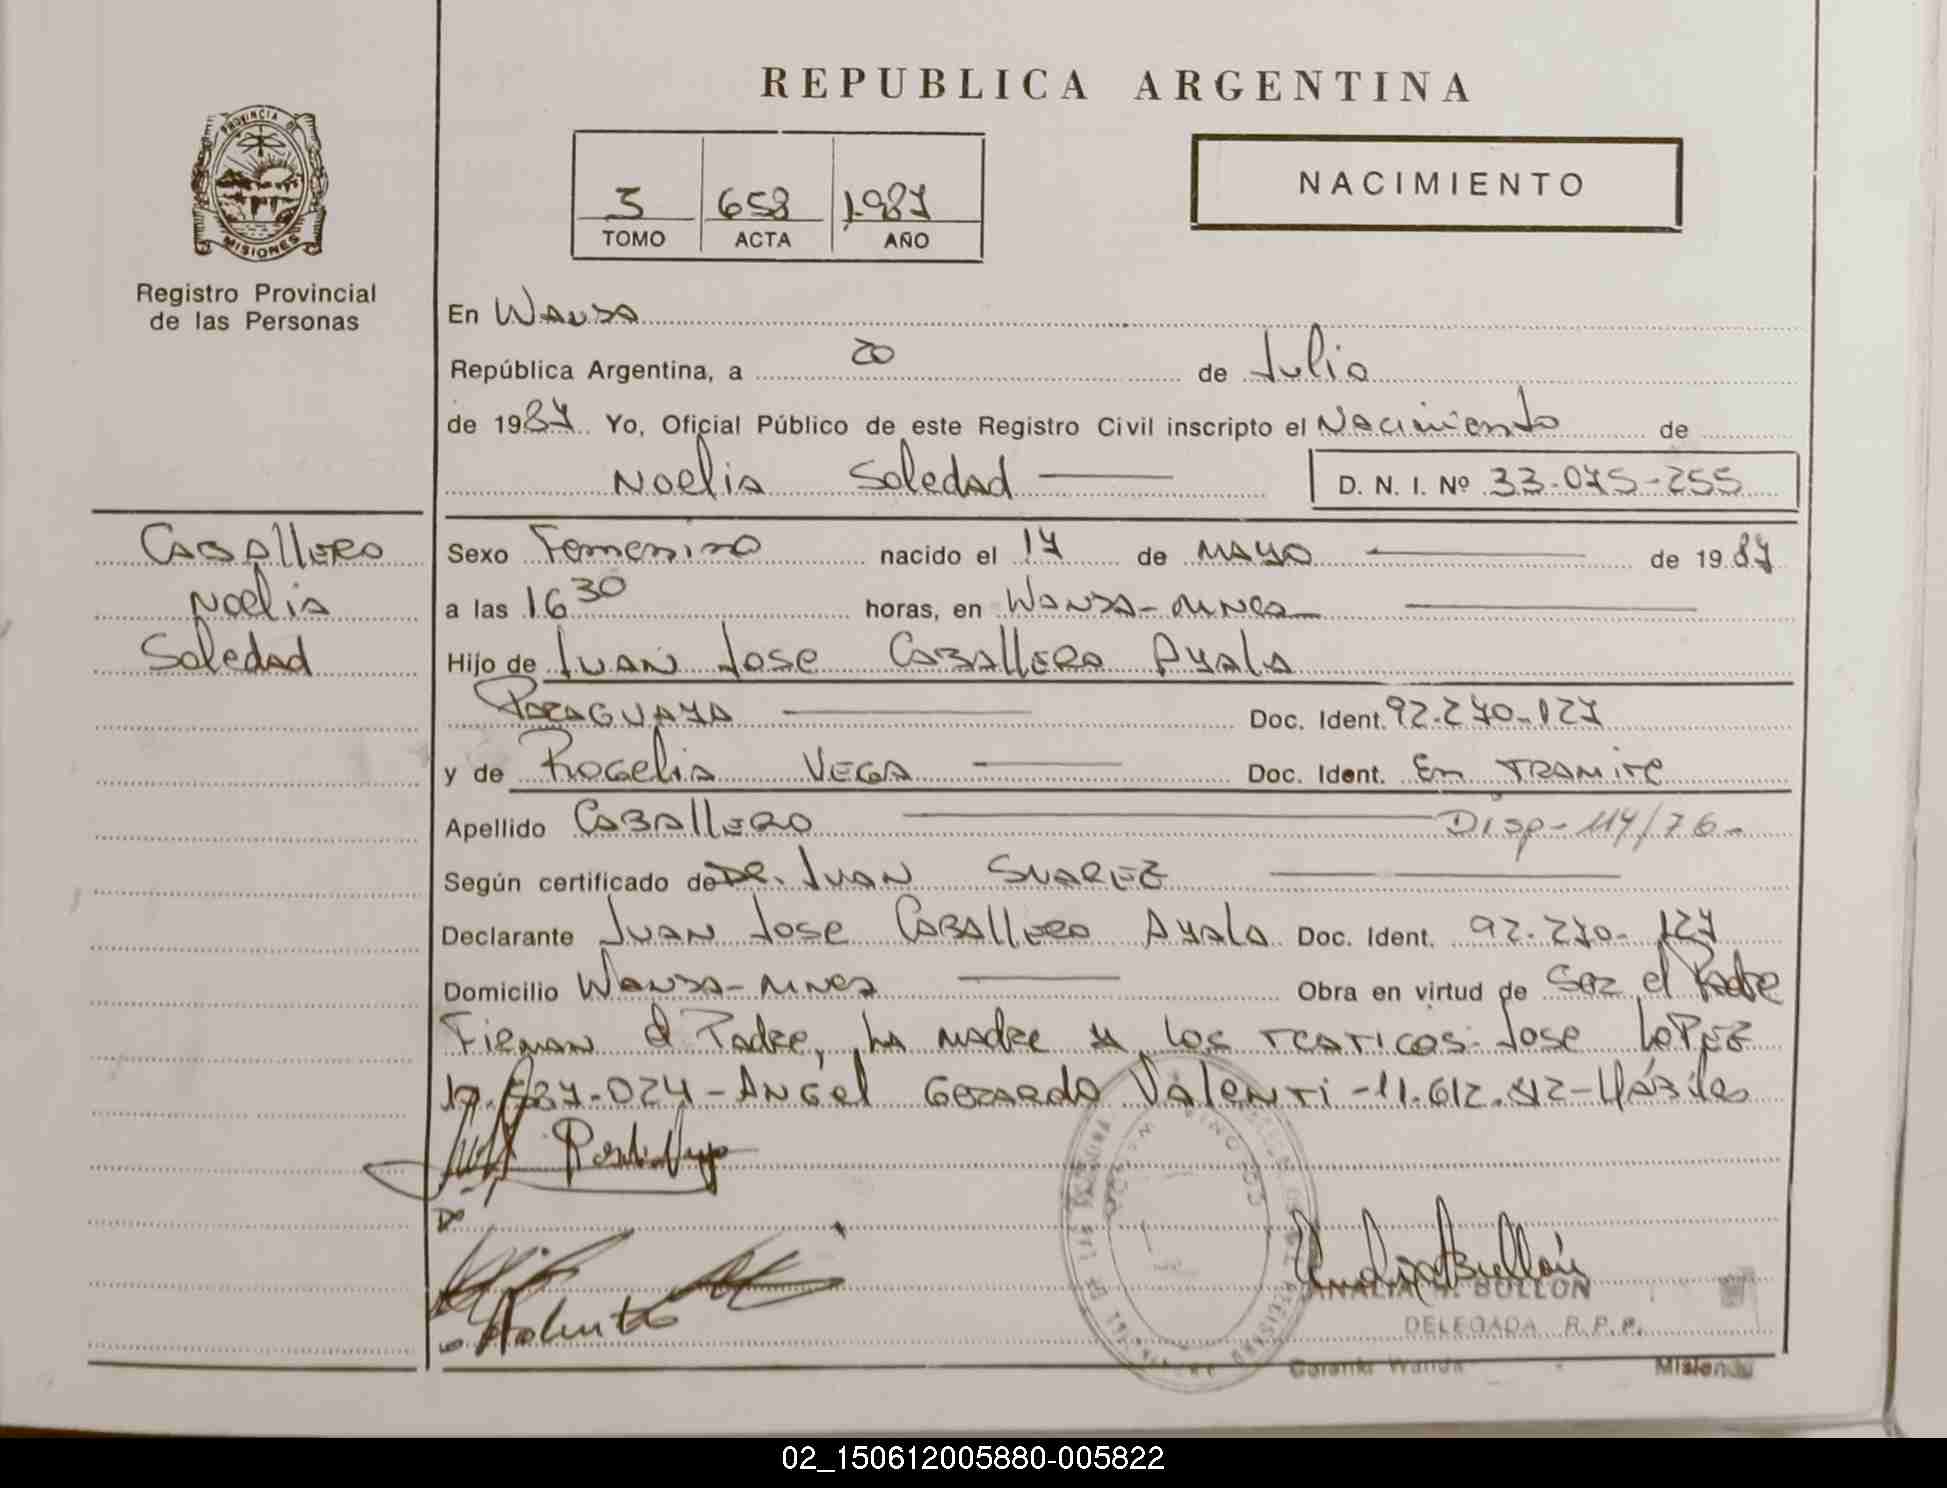 REPUBLICA ARGENTINA
PROVINCIA DE
MISIONES
Registro Provincial
de las Personas
3 658 1.987
TOMO ACTA AÑO
NACIMIENTO
En Wanda
República Argentina, a 20 de Julio
de 1987 Yo, Oficial Público de este Registro Civil inscripto el Nacimiento de
Noelia Soledad
D. N. I. Nº 33-075-255
Caballero
Noelia
Soledad
Sexo Femenino nacido el 17 de Mayo de 1987
a las 16 30 horas, en Wanda-Mnes
Hijo de Juan Jose Caballero Ayala
Paraguaya Doc. Ident. 92.270.127
y de Rogelia Vega Doc. Ident. En tramite
Apellido Caballero Disp-114/76-
Según certificado de Dr. Juan Suarez
Declarante Juan Jose Caballero Ayala Doc. Ident. 92.270.127
Domicilio Wanda-Mnes Obra en virtud de Ser el Padre
Firman el Padre, la madre y los testigos: Jose Lopez
-024-Angel Gerardo Valenti-11.612. -Hábiles
ANALIA BULLON
DELEGADA R.P.P.
Wanda Misiones
02_150612005880-005822